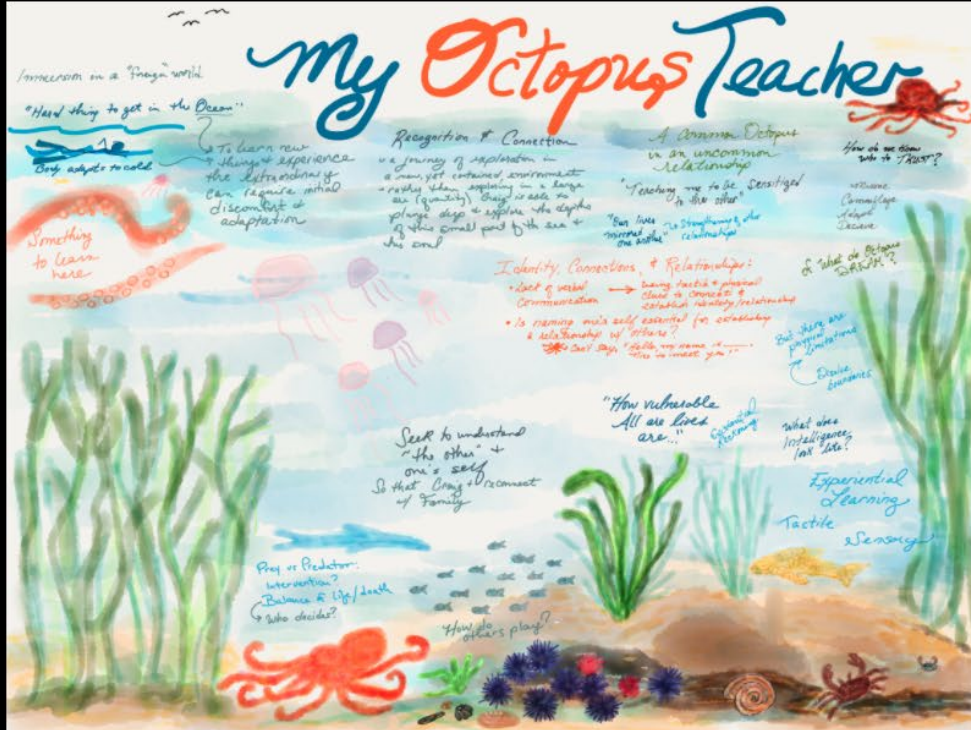 My Octopus Teacher
Immersion in a "Foreign" world
"Hard thing to get in the Ocean"
Body adapts to cold
To learn new
things & experience
the extraordinary
can require initial
discomfort &
adaptation
Something
to learn
here
Recognition & Connection
a journey of exploration in
a new, yet contained, environment
rather than exploring in a large
are (quantity) Craig is able to
plunge deep & explore the depths
of this small part of the sea &
his soul
A Common Octopus
in an uncommon
relationship
"Teaching me to be sensitized
to the other"
"Our lives
mirrored
one another"
Strengthening of other
relationships
How do we know
who to TRUST?
Camouflage
Adapt
Deceive
Identity, Connections, & Relationships:
• Lack of verbal
Communication
using tactile & physical
clues to connect &
establish identity/relationship
• Is naming one's self essential for establishing
a relationship w/ others?
Can't say, "Hello, my name is ____.
Nice to meet you."
& What do Octopus
DREAM?
But there are
physical
limitations
boundaries
"How vulnerable
All are lives
are..."
Learning
What does
Intelligence
look like?
Seek to understand
"the other" &
one's self
So that Craig reconnect
w/ Family
Experiential
Learning
Tactile
Sensory
Prey vs Predator:
Intervention?
Balance of life/death
Who decides?
How do
others play?